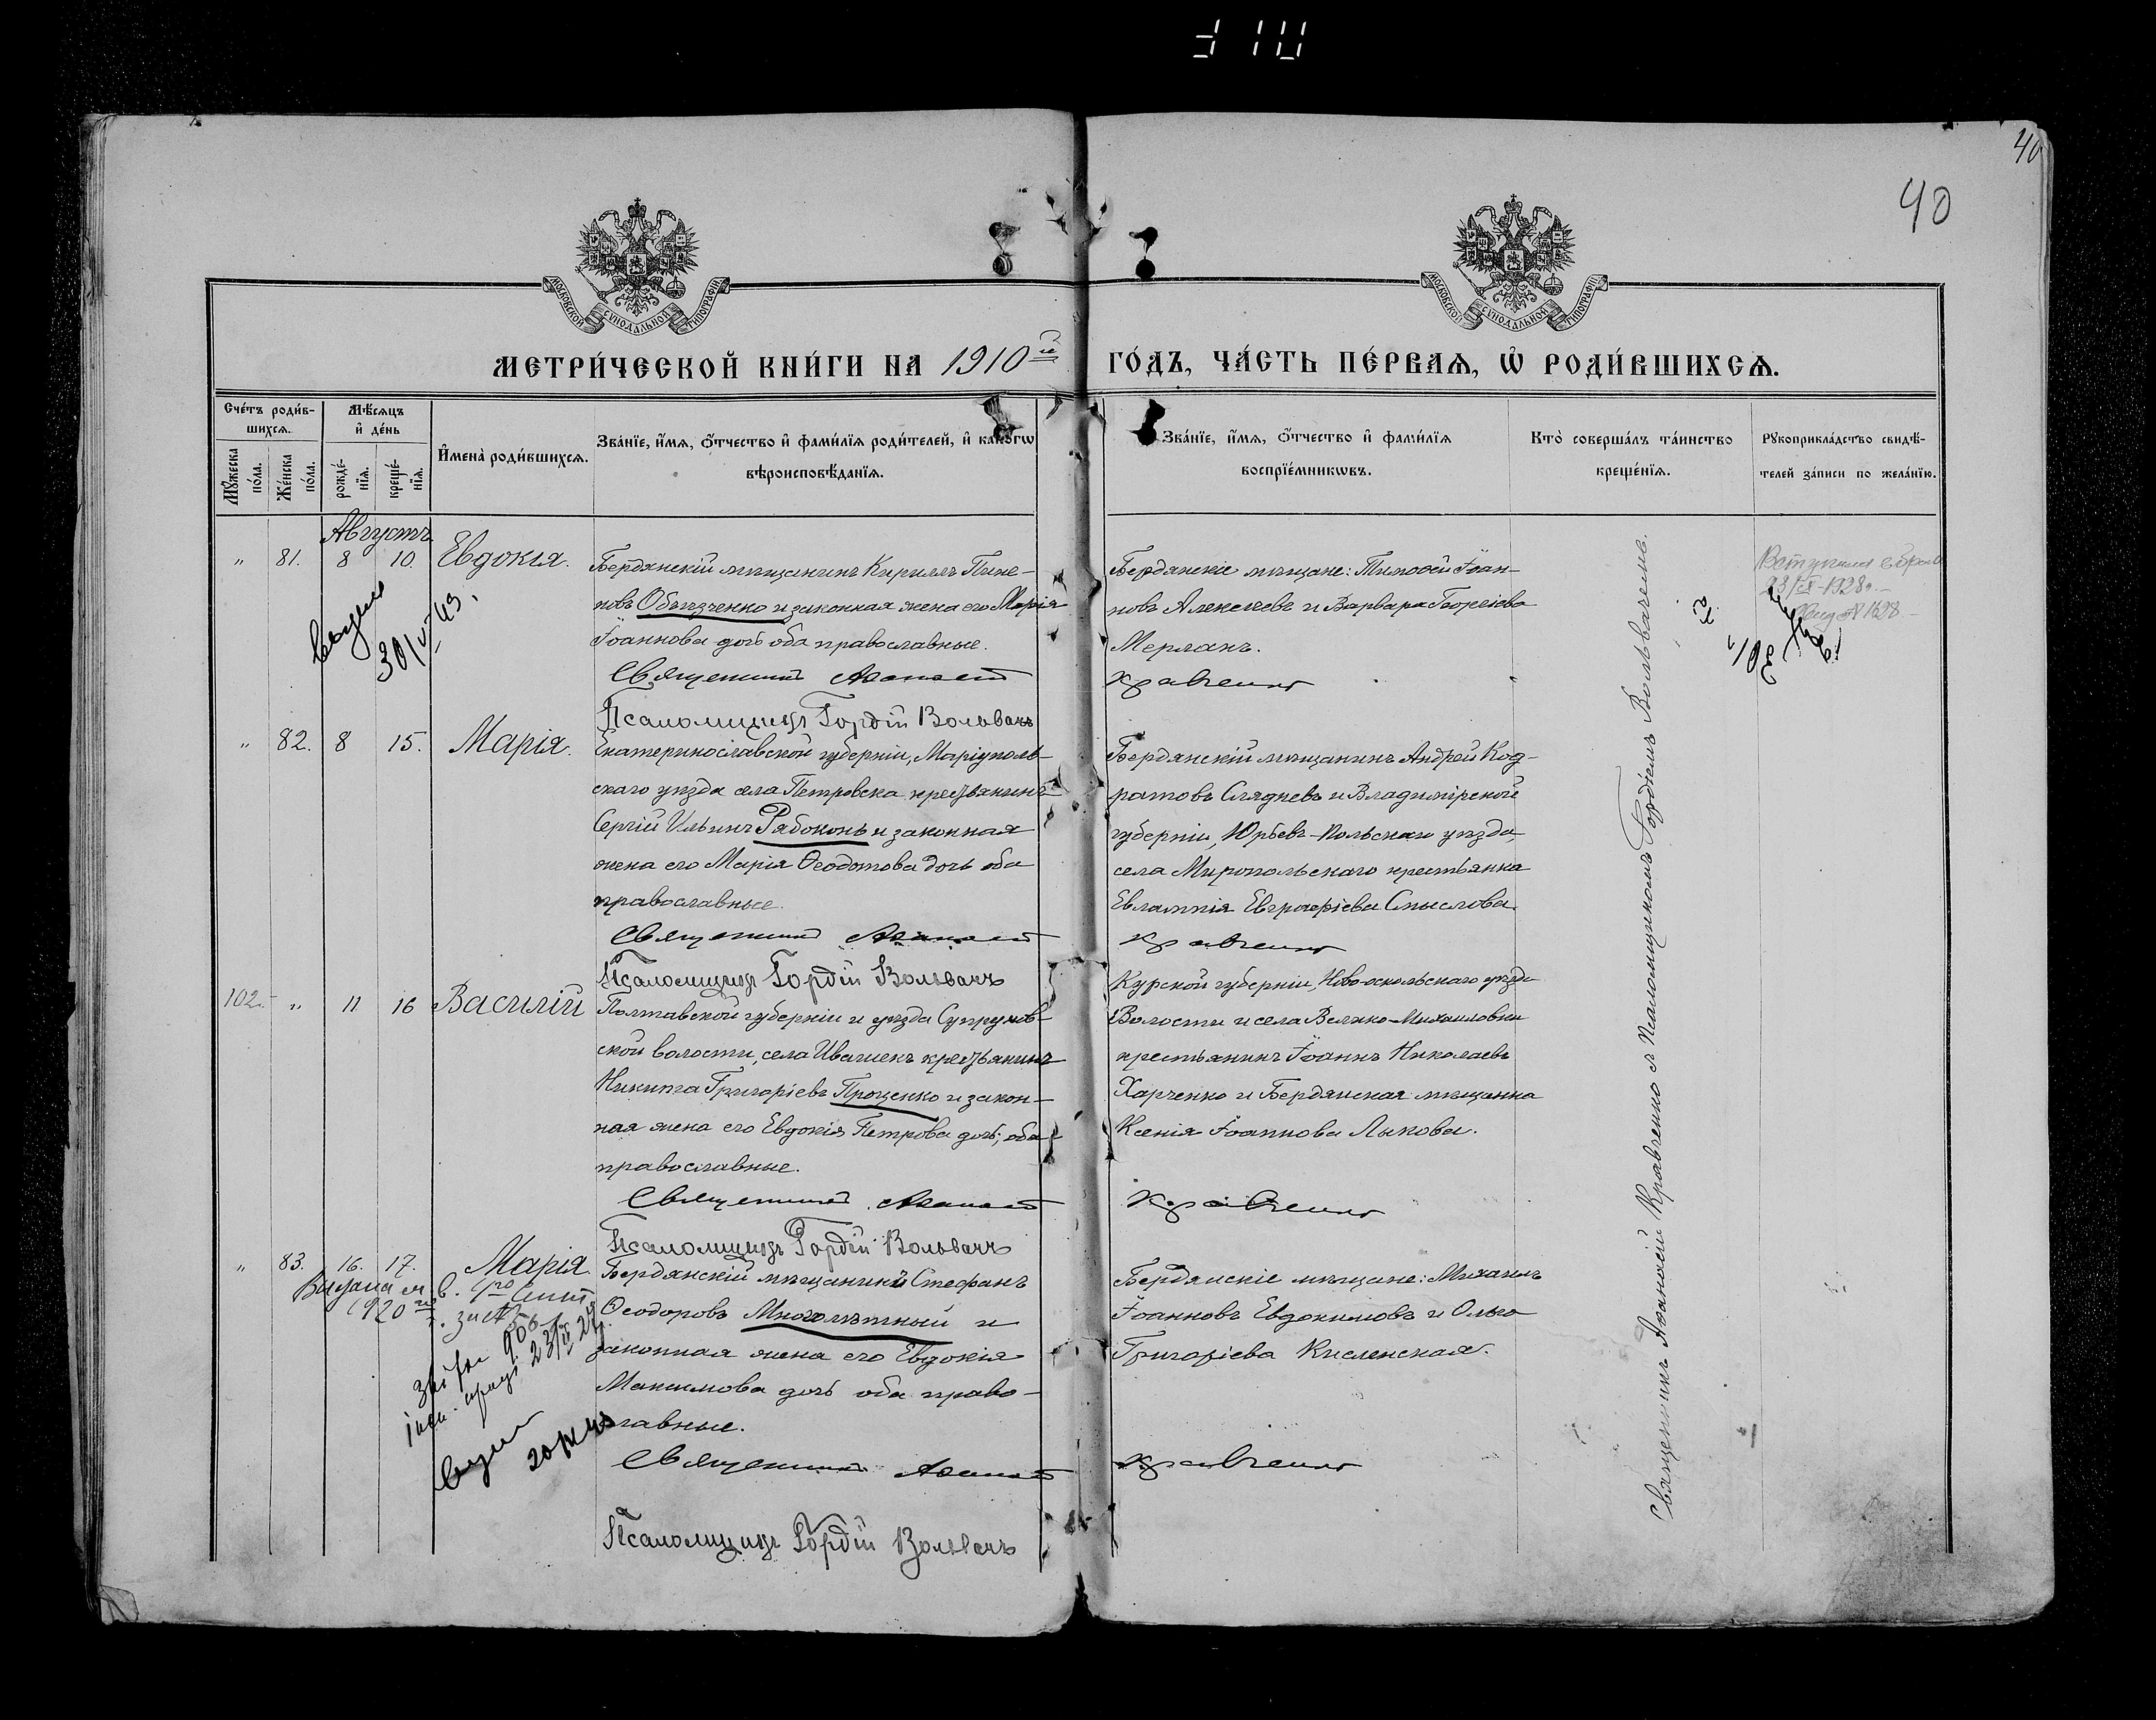 40
40
МОСКОВСКОЙ СѴНОДАЛЬНОЙ ТИПОГРАФІИ
МОСКОВСКОЙ СѴНОДАЛЬНОЙ ТИПОГРАФІИ
МЕТРИ́ЧЕСКОЙ КНИ́ГИ НА 1910 й ГО́ДЪ, ЧА́СТЬ ПЕ́РВАѦ, Ѽ РОДИ́ВШИХСѦ.
Сче́тъ роди́в-
шихсѧ.
Мѣ́сѧцъ
и҆ де́нь
Мꙋ́жеска по́ла.
Же́нска по́ла.
рожде́-
нїѧ.
креще́-
нїѧ.
И҆мена̀ роди́вшихсѧ.
Зва́нїе, и҆́мѧ, ѻ҆́тчество и҆ фами́лїѧ роди́телей, и҆ како́гѡ
вѣроисповѣ́данїѧ.
Зва́нїе, и҆́мѧ, ѻ҆́тчество и҆ фами́лїѧ
воспрїе́мникѡвъ.
Кто̀ соверша́лъ та́инство
креще́нїѧ.
Рꙋкоприкла́дство свидѣ́-
телей за́писи по жела́нїю.
Августъ
" 81. 8 10. Евдокія.
Бердянскій мѣщанинъ Кириллъ Пиме-
новъ Объизченко и законная жена его Марія
Іоаннова дочь оба православные.
Священникъ Аѳанасій Кравченко
Псаломщикъ Гордій Вольвачъ
Бердянскіе мѣщане: Тимоѳей Іоан-
новъ Алексѣевъ и Варвара Георгіева
Мерланъ.
23/IX-1928г.
30/VI 43
" 82. 8 15. Марія.
Екатеринославской губерніи, Маріуполь-
скаго уѣзда села Петровска крестьянинъ
Сергій Ильинъ Рябоконь и законная
жена его Марія Ѳеодотова дочь оба
православные.
Священникъ Аѳанасій Кравченко
Псаломщикъ Гордій Вольвачъ
Бердянскій мѣщанинъ Андрей Код-
ратовъ Сляднев и Владимірской
губерніи, Юрьевъ-Польскаго уѣзда,
села Миропольскаго крестьянка
Евлампія Евграфіева Смыслова.
102. " 11 16 Василій
Полтавской губерніи и уѣзда Супрунов-
ской волости, села Ивашекъ крестьянинъ
Никита Григоріевъ Проценко и закон-
ная жена его Евдокія Петрова дочь; оба
православные.
Священникъ Аѳанасій Кравченко
Псаломщикъ Гордій Вольвачъ
Курской губерніи, Ново-оскольскаго уѣзда
Волости и села Велико-Михаиловки
крестьянинъ Іоаннъ Николаевъ
Харченко и Бердянская мѣщанка
Ксенія Іоаннова Лыкова.
" 83. 16. 17. Марія.
Бердянскій мѣщанинъ Стефанъ
Ѳеодоровъ Многолѣтный и
законная жена его Евдокія
Максимова дочь оба право-
славные.
Священникъ Аѳанасій Кравченко
Псаломщикъ Гордій Вольвачъ
Бердянскіе мѣщане: Михаилъ
Іоанновъ Евдокимовъ и Ольга
Григоріева Кисленская.
1920
Священникъ Аѳанасій Кравченко съ Псаломщикомъ Гордіемъ Вольвачемъ.